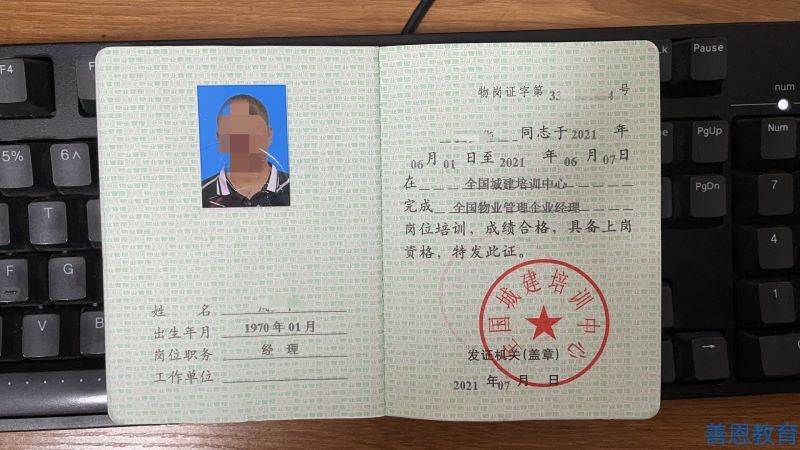 姓 名
出生年月 1970 年 01 月
岗位职务 经 理
工作单位
物岗证字第 33 4 号
同志于2021 年
06月 01 日至 2021 年 06 月 07日
在 全国城建培训中心
完成 全国物业管理企业经理
岗位培训，成绩合格，具备上岗
资格，特发此证。
全国城建培训中心
发证机关(盖章)
2021 年07 月 日
F4
5%
6
T
Y
F
G
V
B
Pause
PgUp
PgDn
num
Num
7
4
1
0
善恩教育